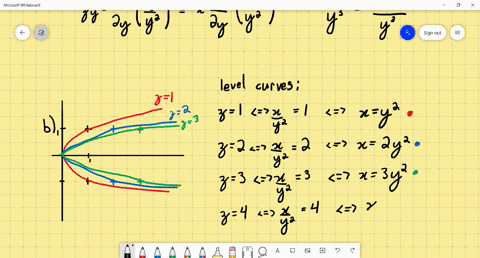 Microsoft Whiteboard
Sign out
level curves;
b)
1
1
z=1
z=2
z=3
z=1 <=> x/y² = 1 <=> x=y²
z=2 <=> x/y² = 2 <=> x=2y²
z=3 <=> x/y² = 3 <=> x=3y²
z=4 <=> x/y² = 4 <=>